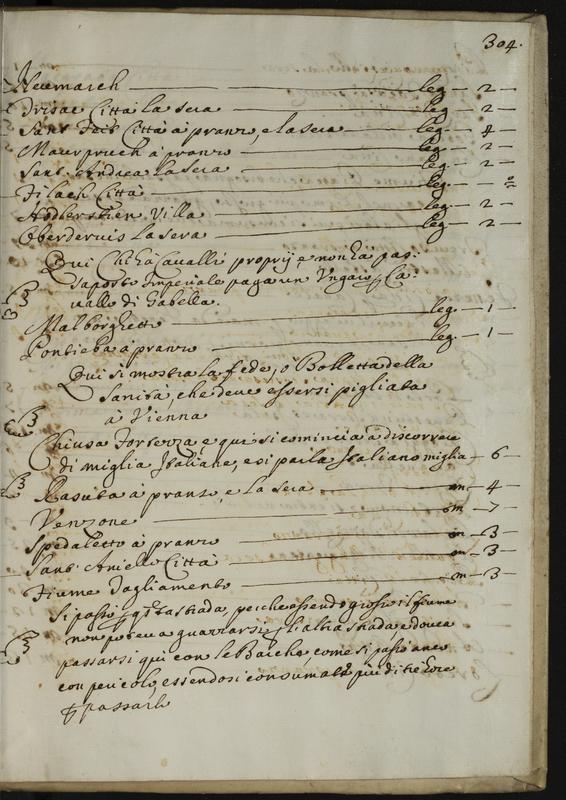 304.
Neumarch — leg — 2 —
Frisac Città la sera — leg — 2 —
Sant Faib Città à pranzo, e la sera — leg — 4 —
Maurpruch à pranzo — leg — 2 —
Sant Andrea la sera — leg — 2 —
Filach Città — leg —
Adlerstien Villa — leg — 2 —
Oberdervis la sera — leg — 2 —
Qui Chi hà Cavalli proprij, e non hà pas:
saporto Imperiale paga un Ungaro p Ca:
vallo di Gabella.
Malborghetto — leg. — 1 —
Pontieba à pranzo — leg. — 1 —
Qui si mostra la fede, ò Bolletta della
Sanità, che deve essersi pigliata
à Vienna
Chiusa Fortezza, e qui si comincia à discorrere
di miglia Italiane, e si parla Italiano miglia — 6 —
Rasiuta à pranzo, e la sera — m — 4 —
Venzone — m — 7 —
Spedaletto à pranzo — m — 3 —
Sant' Aniello Città — m — 3 —
Fiume Tagliamento — m — 3 —
Si passò p qta strada, perche essendo grosso il fiume
non poteva guazzarsi p l'altra strada e dovea
passarsi qui con le Barche, come si passò anco
con pericolo, essendosi consumate più di tre hore
p passarlo